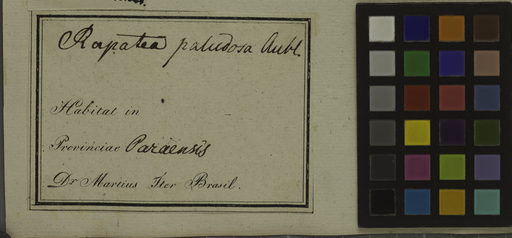 Rapatea paludosa Aubl.
Habitat in
Provinciae Paraensis
Dr Martius Iter Brasil.